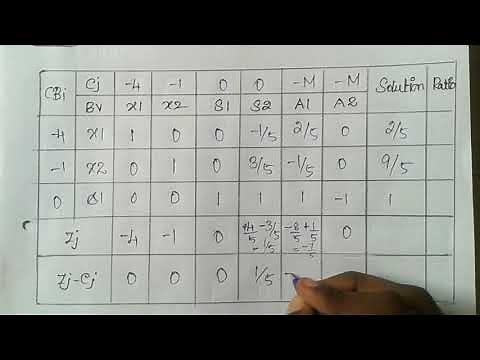 CBi Cj -4 -1 0 0 -M -M Solution Ratio
BV X1 X2 S1 S2 A1 A2
-4 X1 1 0 0 -1/5 2/5 0 2/5
-1 X2 0 1 0 3/5 -1/5 0 9/5
0 S1 0 0 1 1 1 -1 1
Zj -4 -1 0 +4/5 -3/5 = 1/5 -8/5 + 1/5 = -7/5 0
Zj-Cj 0 0 0 1/5